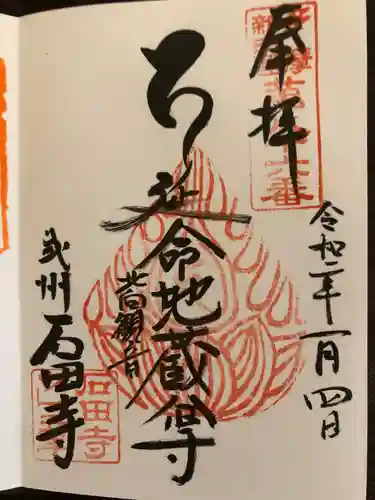 奉拝
令和二年一月四日
延命地蔵尊
観音
武州 石田寺
石田寺